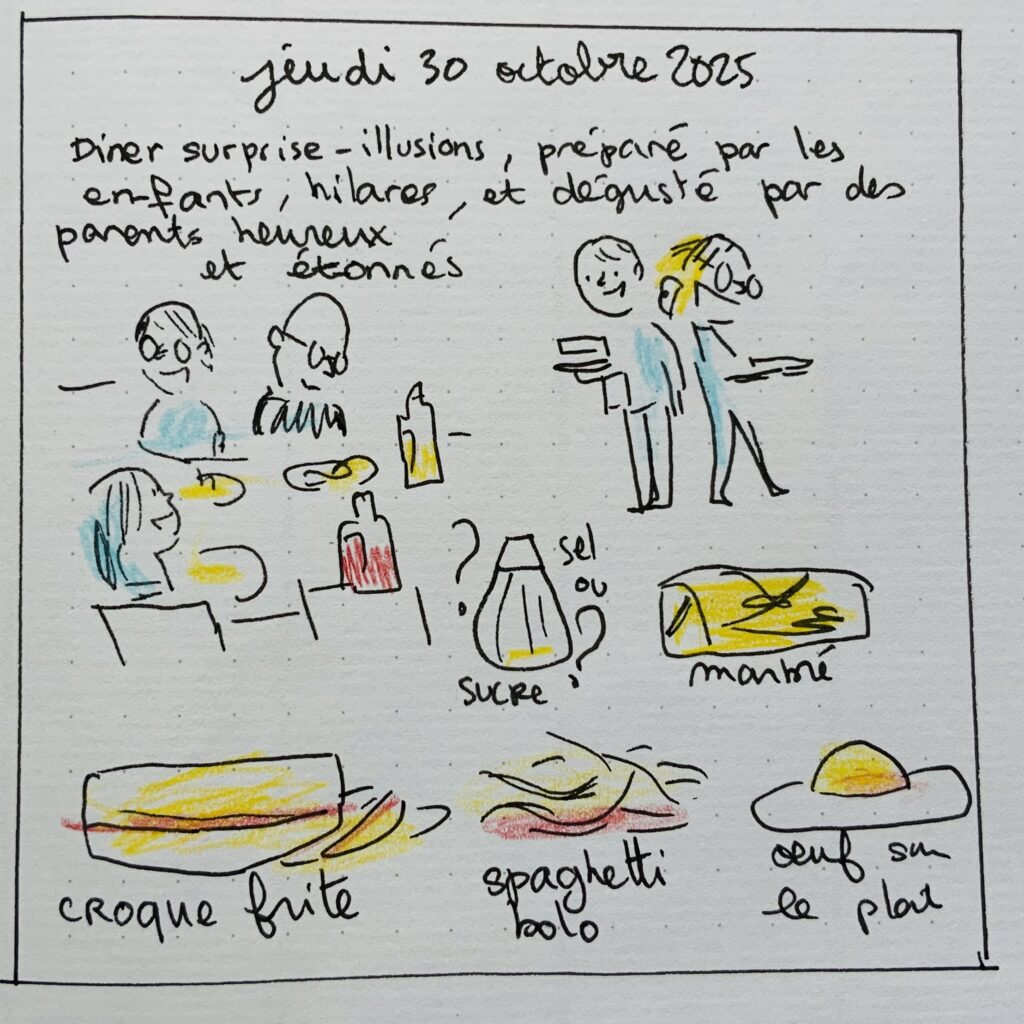 jeudi 30 octobre 2025
Diner surprise - illusions, préparé par les
enfants, hilares, et dégusté par des
parents heureux
et étonnés
? sel
ou
?
sucre
marbré
croque frite
spaghetti
bolo
œuf sur
le plat